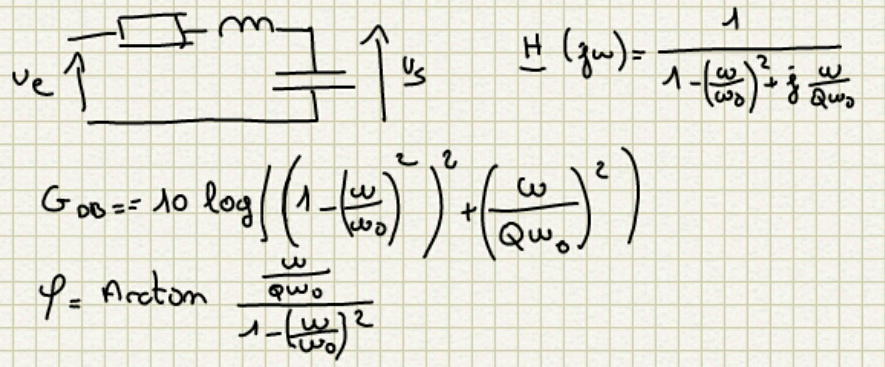 ve vs H (jω) = 1 / (1 - (ω/ω0)² + j ω/Qω0)
G DB == 10 log((1 - (ω/ω0)²)² + (ω/Qω0)²)
φ = Arctan (ω/Qω0) / (1 - (ω/ω0)²)